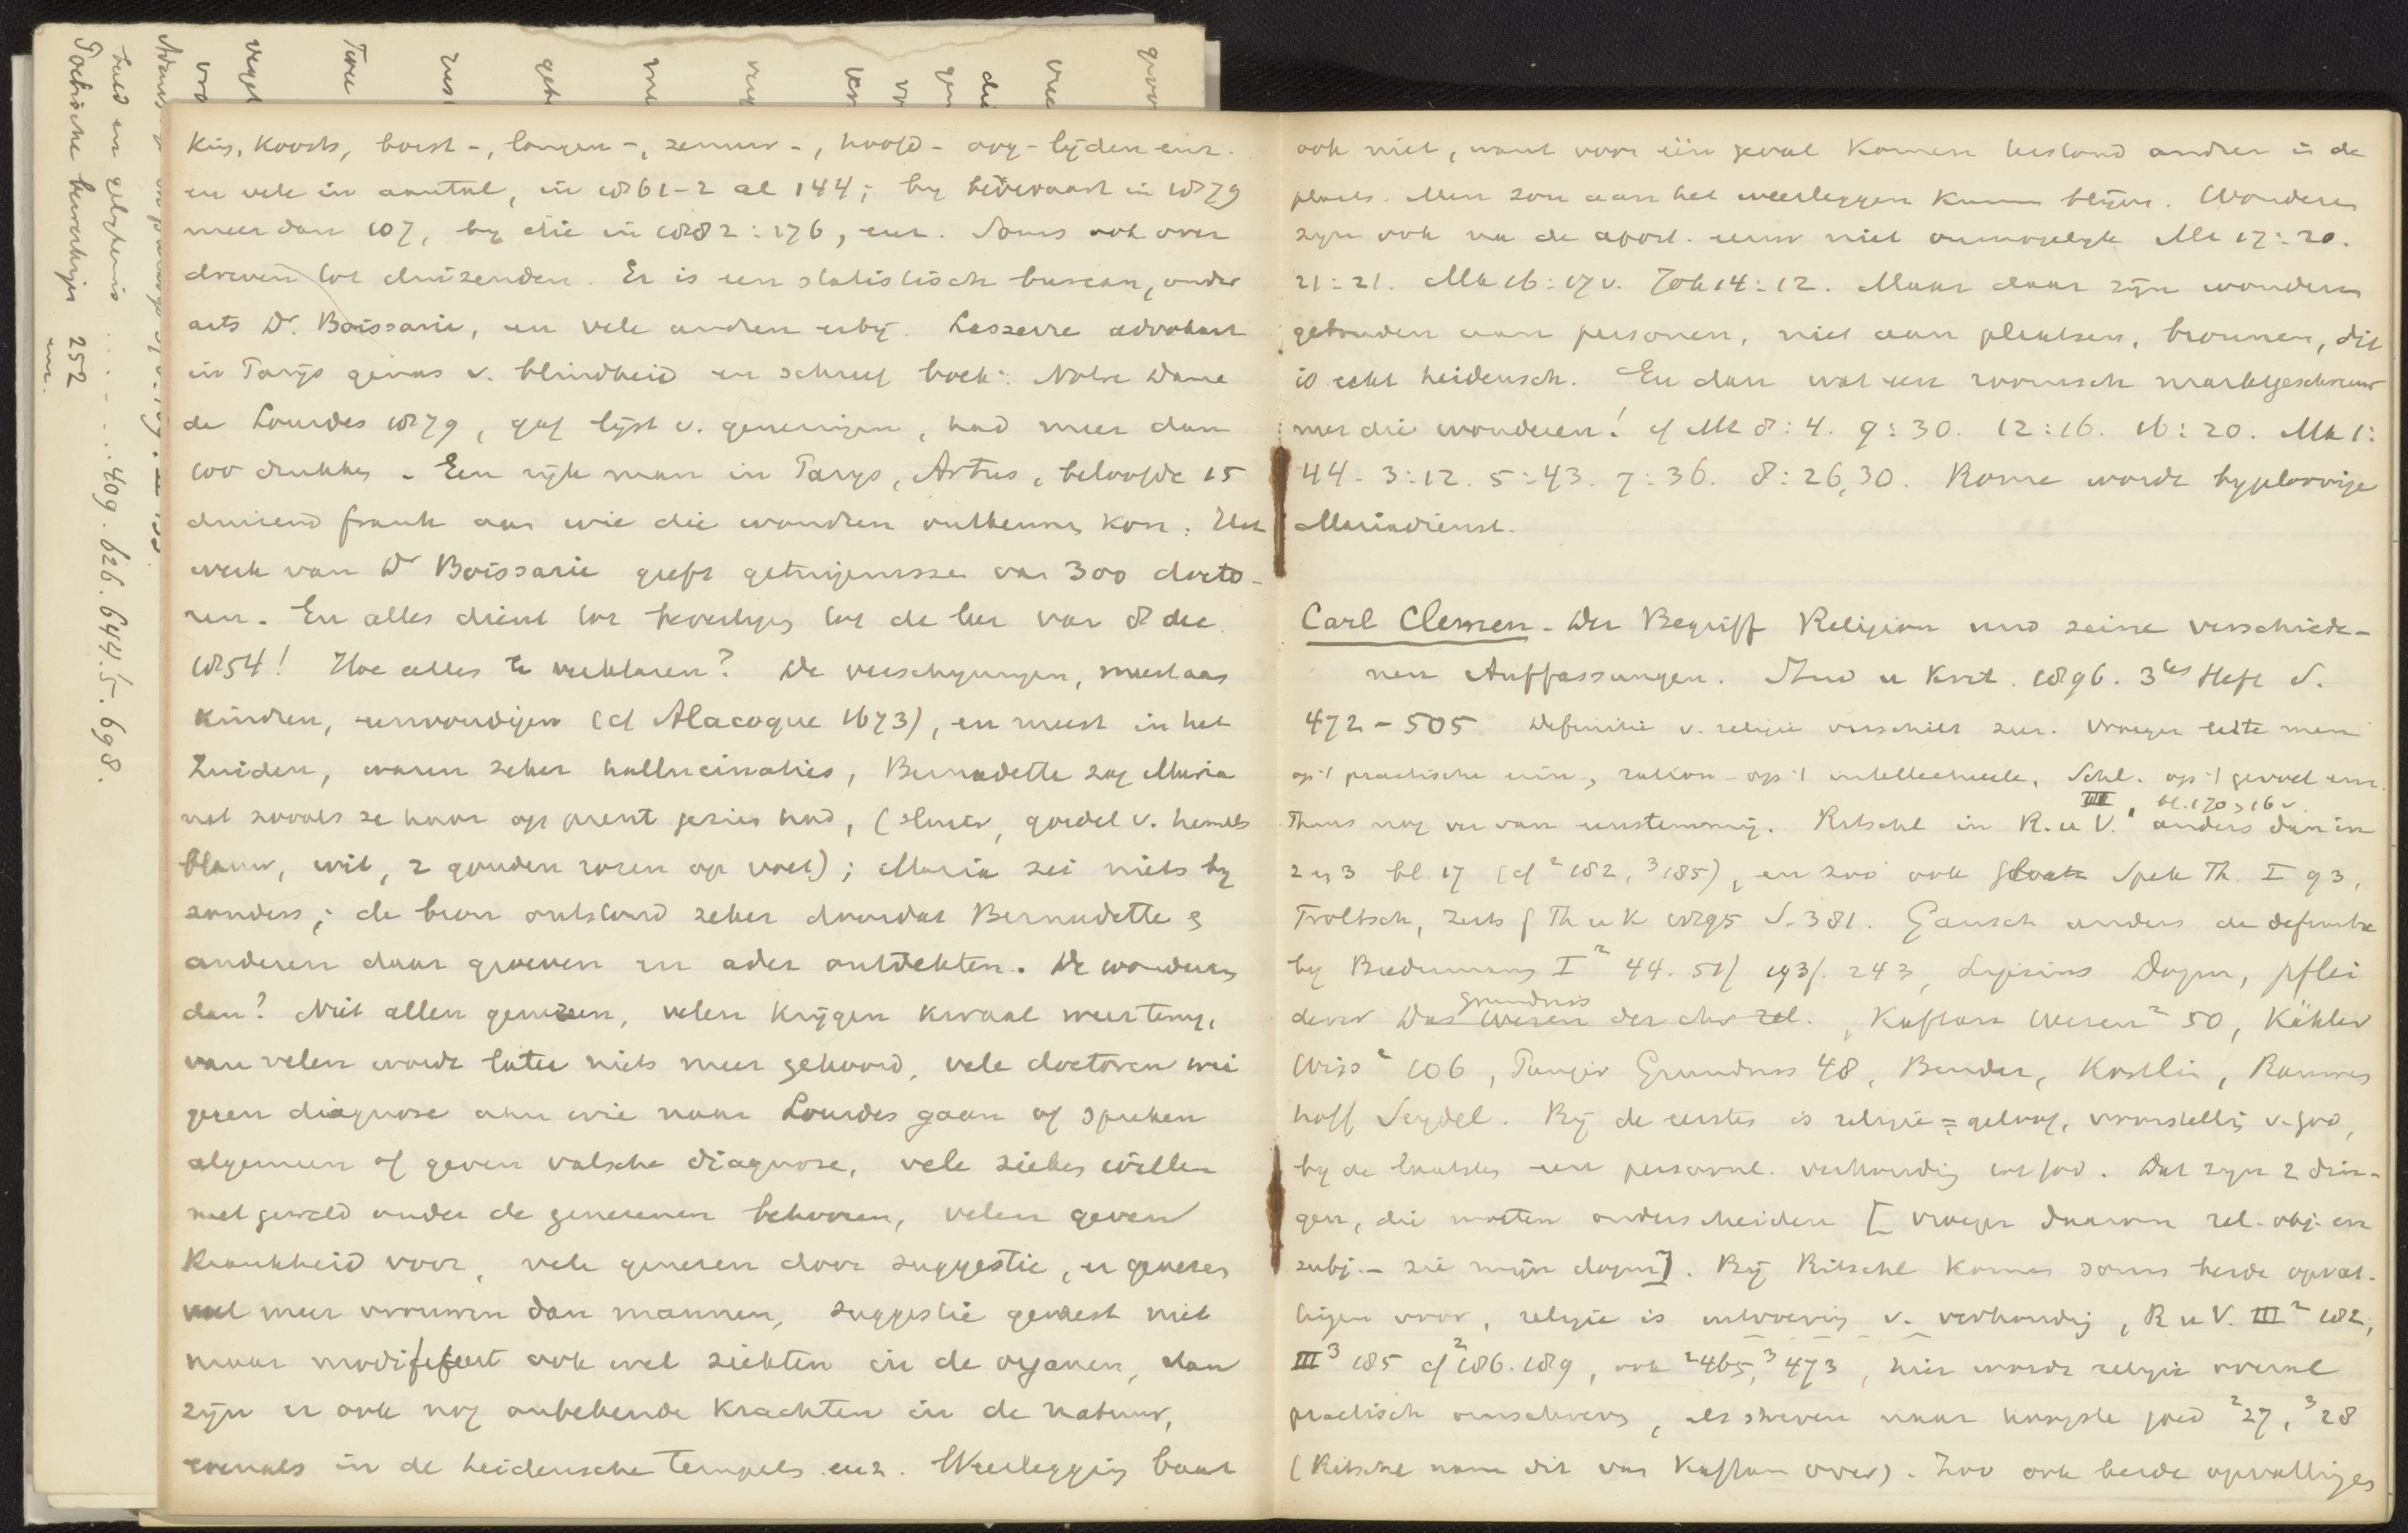 kies, koorts, borst-, longen-, zenuw-, hoofd- oog-lijden enz.
en vele in aantal, in 1861-2 al 144; by bedevaart in 1879
meer dan 107, by die in 1882: 176, enz. Soms ook over
dreven tot duizenden. Er is een statistisch bureau, onder
arts Dr. Boissarie, en vele andren erby. Lasserre advokaat
in Parijs genas v. blindheid en schreef boek: Notre Dame
de Lourdes 1879, gaf lijst v. genezingen, had meer dan
100 drukken. Een rijk man in Parys, Artus, beloofde 15
duizend frank aan wie die wondren ontkennen kon. Het
werk van Dr Boissarie geeft getuigenissen van 300 docto-
ren. En alles dient tot bevestiging tot de leer van 8 dec.
1854! Hoe alles te verklaren? De verschyningen, meest aan
kindren, eenvoudigen (cf Alacoque 1673), en meest in het
Zuiden, waren zeker hallucinaties, Bernadette zag Maria
net zooals ze haar op prent gezien had, (sluier, gordel v. hemels
blauw, wit, 2 gouden rozen op voet); Maria zei niets by
zonders; de bron ontstond zeker doordat Bernadette &
anderen daar groeven en ader ontdekten. De wonderen
dan? Niet allen genezen, velen krijgen kwaal weer terug,
van velen wordt later niets meer gehoord, vele doctoren wei
geren diagnose aan wie naar Lourdes gaan of spreken
algemeen of geven valsche diagnose, vele zieken willen
met geweld onder de genezenen behooren, velen geven
krankheid voor, vele genezen door suggestie, er genezen
veel meer vrouwen dan mannen, suggestie geneest niet
maar modifieert ook wel ziekten in de organen, dan
zijn er ook nog onbekende krachten in de natuur,
evenals in de heidensche tempels enz. Weerlegging baat
ook niet, want voor één geval komen terstond andren in de
plaats. Men zou aan het weerleggen kunnen blijven. Wonderen
zijn ook na de apost. eeuw niet onmogelijk Mt 17:20.
21:21. Mk 16:17v. Joh 14:12. Maar daar zijn wonderen
gebonden aan personen, niet aan plaatsen, bronnen, dit
is echt heidensch. En dan wat een roomsch marktgeschreeuw
met die wonderen! cf Mt 8:4. 9:30. 12:16. 16:20. Mk 1:
44. 3:12. 5:43. 7:36. 8:26,30. Rome wordt
Mariadienst.
Carl Clemen. Der Begriff Religion und seine verschiede-
nen Auffassungen. Stud u Krit. 1896. 3tes Heft S.
472-505. Definitie v. religie verschilt zeer. Vroeger lette men
op 't practische, ration. op 't intellectueele, Schl. op 't gevoel enz.
Thans nog ver van eenstemmig. Ritschl in R.u V. III, bl. 170, 16v. anders dan in
2 en 3 bl. 17 (cf ²182, ³185), en zoo ook Spek Th. I 93,
Troltsch, Zeits f Th u K 1895 S. 381. Gansch anders de definitie
by Biedermann I² 44. 51f 193f. 243, Lipsius Dogm, Pflei
derer Das Wesen grundriss der chr rel., Kaftan Wesen² 50, Kähler
Wiss² 106, Grundriss 48, Bender, Köstlin, Rauwen
hoff Seydel. Bij de eerste is religie = geloof, voorstelling v. God,
by de laatsten een personl. verhouding tot God. Dat zyn 2 din-
gen, die moeten onderscheiden [vroeger daarom rel. obj. en
subj. - zie mijn dogm]. Bij Ritschl komen soms beide opvat-
tingen voor, religie is v. verhouding, R u V. III² 182,
III³ 185 cf ²186.189, ook ²465, ³473, hier wordt religie overal
practisch omschreven, als streven naar hoogste goed ²27, ³28
(Ritschl nam dit van Kaftan over). Zoo ook beide opvattingen
Poëtische bewerkingen 252
enz.
409. 626. 644.5. 698.